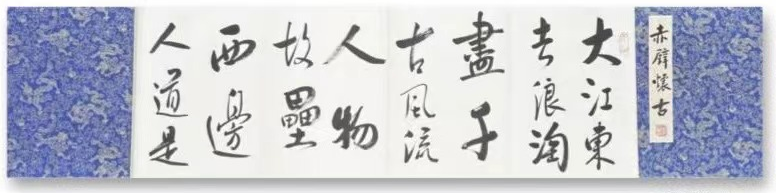 赤壁懷古
大江東
去浪淘
盡千
古風流
人物
故壘
西邊
人道是